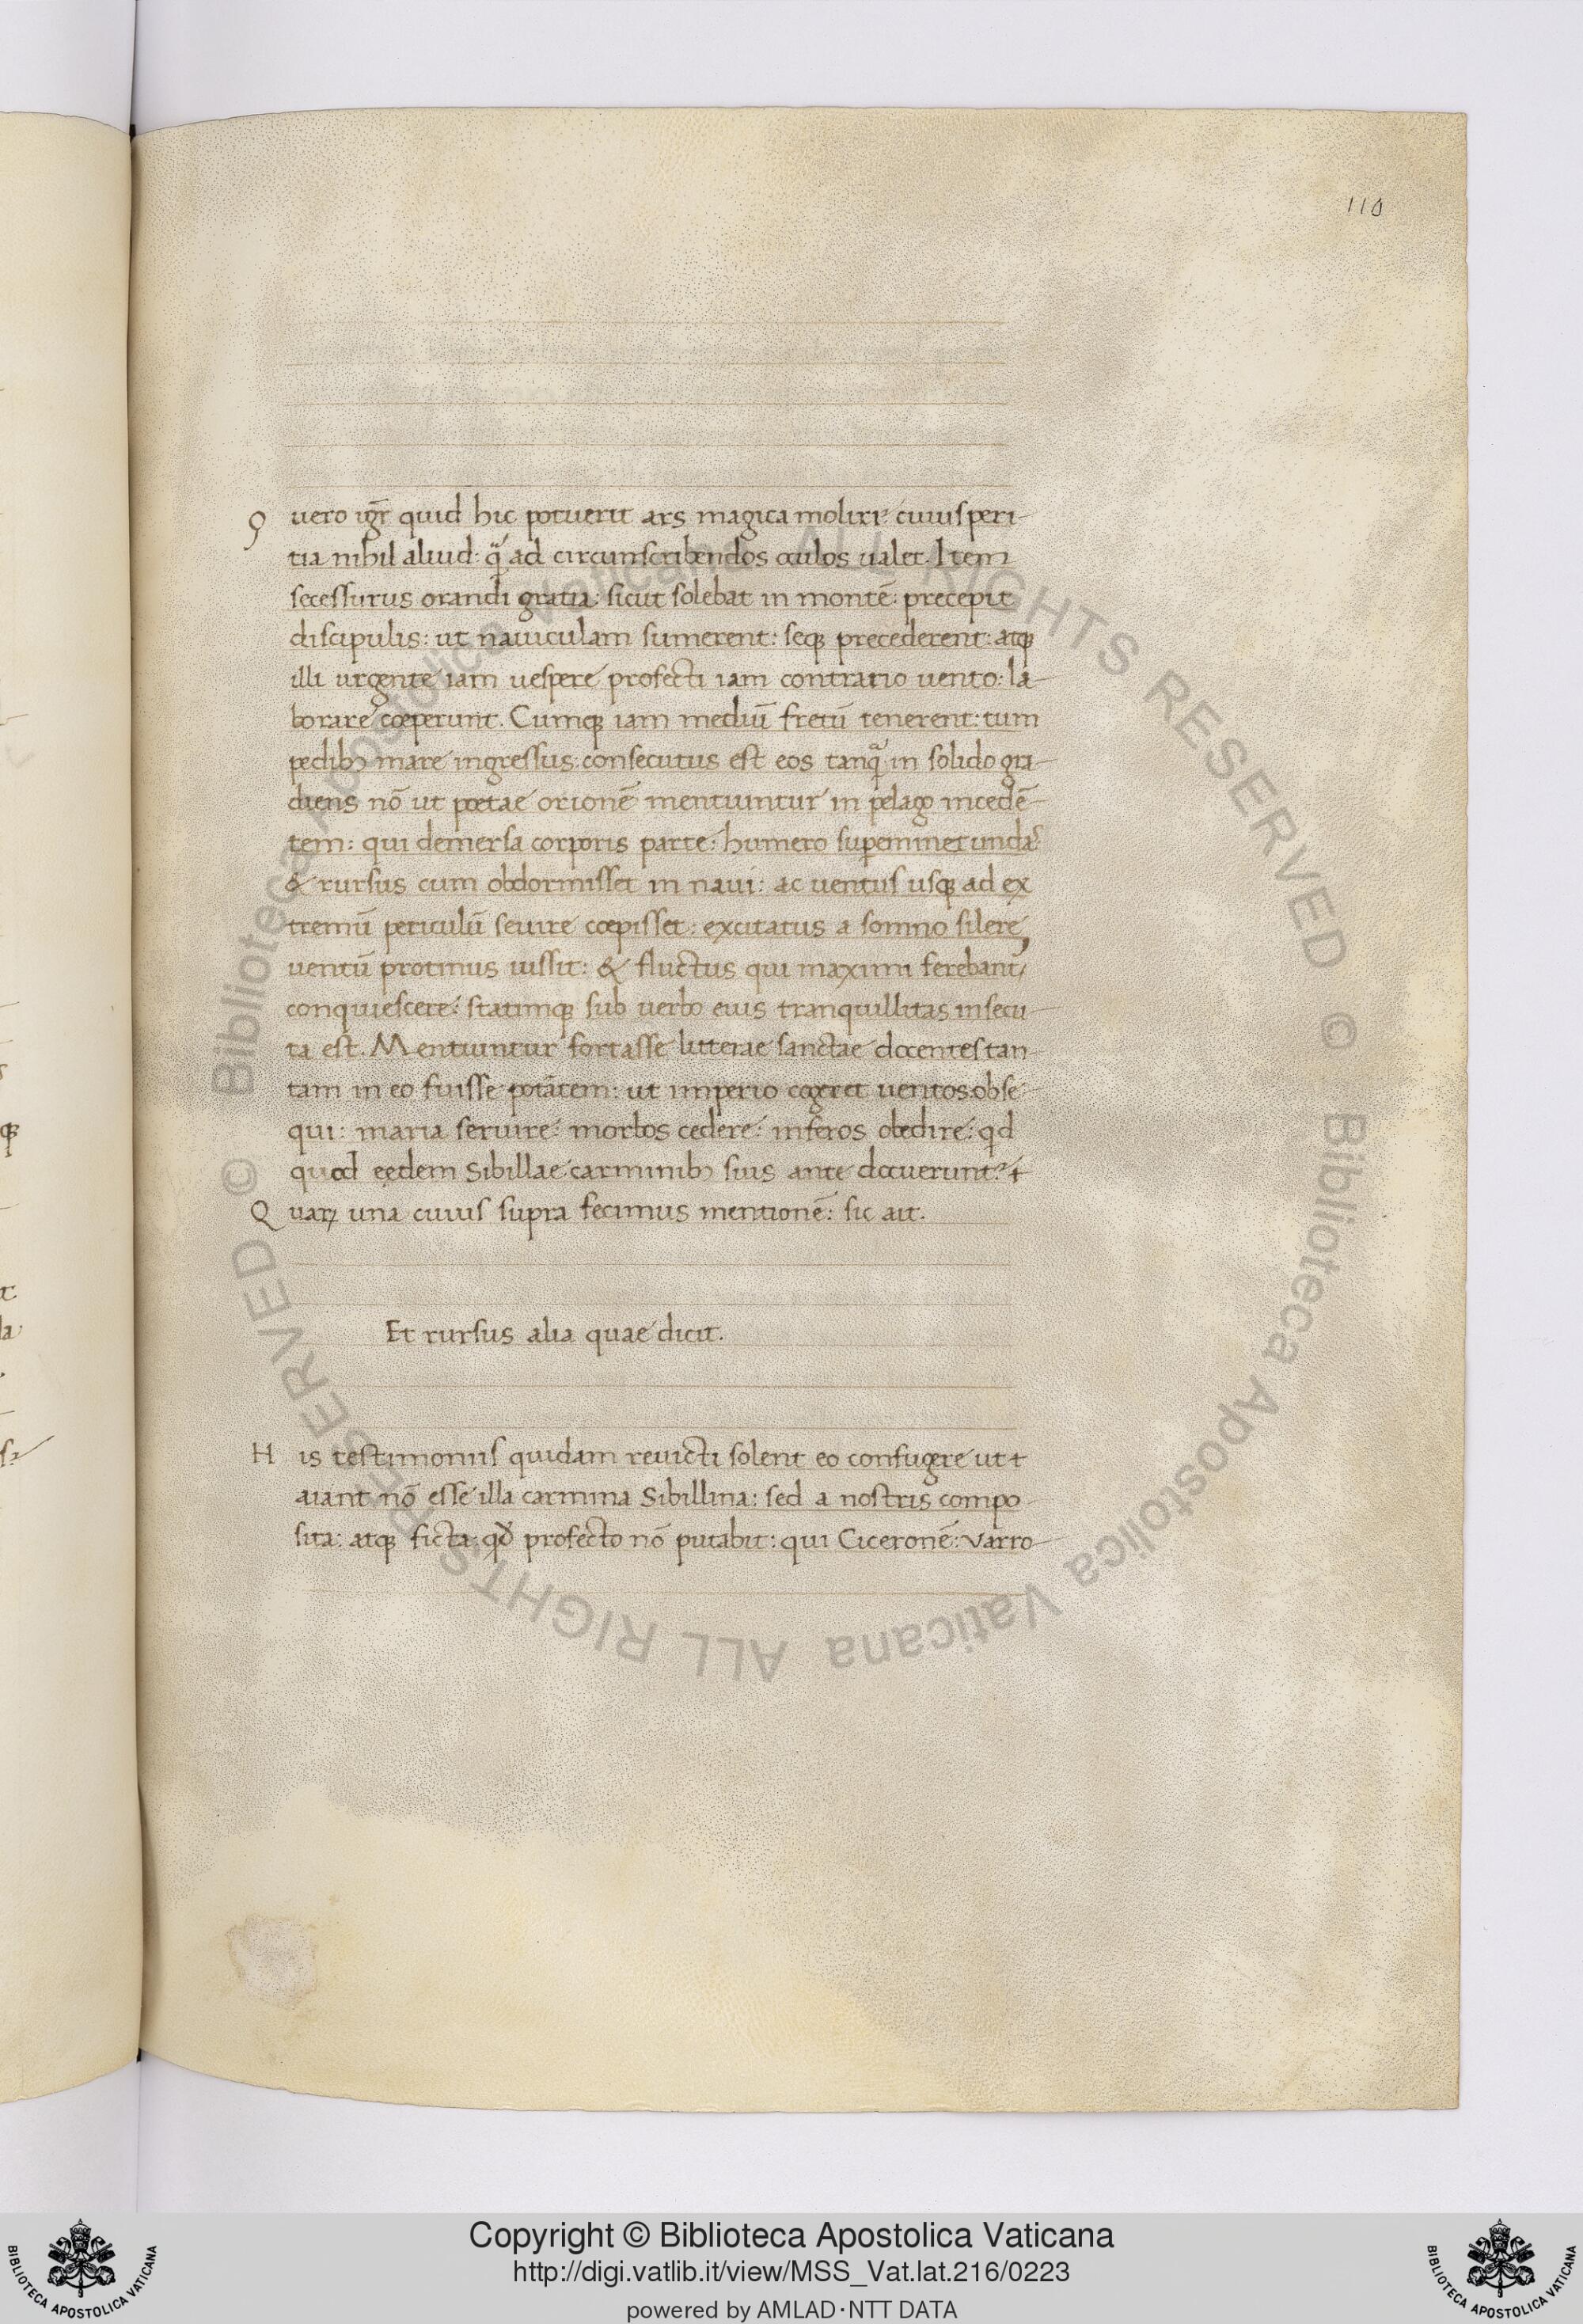 110
Q uero igr̄ quid hic potuerit ars magica moliri: cuiusperi-
tia nihil aliud: q̈ ad circunscribendos oculos ualet. Item
secessurus orandi gratia: sicut solebat in montē: precepit
discipulis: ut nauiculam sumerent: seqꝫ precederent: atqꝫ
illi urgente iam uespere profecti iam contrario uento: la-
borare coeperunt. Cumqꝫ iam mediū fretū tenerent: tum
pedibꝫ mare ingressus: consecutus est eos tanq̈ in solido gra-
diens nō ut poetae orionē mentiuntur in pelago incedē-
tem: qui demersa corporis parte: humero sup̄eminet undas
& rursus cum obdormisset in naui: ac uentus usqꝫ ad ex
tremū periculū seuire coepisset: excitatus a somno silere
uentū protinus iussit: & fluctus qui maximi ferebant,
conquiescere: statimqꝫ sub uerbo eius tranquillitas insecu-
ta est. Mentiuntur fortasse litterae sanctae docentes tan-
tam in eo fuisse potātem: ut imperio cogeret uentos obse-
qui: maria seruire: morbos cedere: inferos obedire: qd
quod eędem Sibillae carminibꝫ suis ante docuerunt? +
Q uarꝝ una cuius supra fecimus mentionē: sic ait.
Et rursus alia quae dicit.
H is testimoniis quidam reuicti solent eo confugere ut +
aiant nō esse illa carmina Sibillina: sed a nostris compo-
sita: atqꝫ ficta: qđ profecto nō putabit: qui Ciceronē: Varro-
Copyright © Biblioteca Apostolica Vaticana
http://digi.vatlib.it/view/MSS_Vat.lat.216/0223
powered by AMLAD·NTT DATA
BIBLIOTECA APOSTOLICA VATICANA
BIBLIOTECA APOSTOLICA VATICANA
© Biblioteca Apostolica Vaticana ALL RIGHTS RESERVED
© Biblioteca Apostolica Vaticana ALL RIGHTS RESERVED